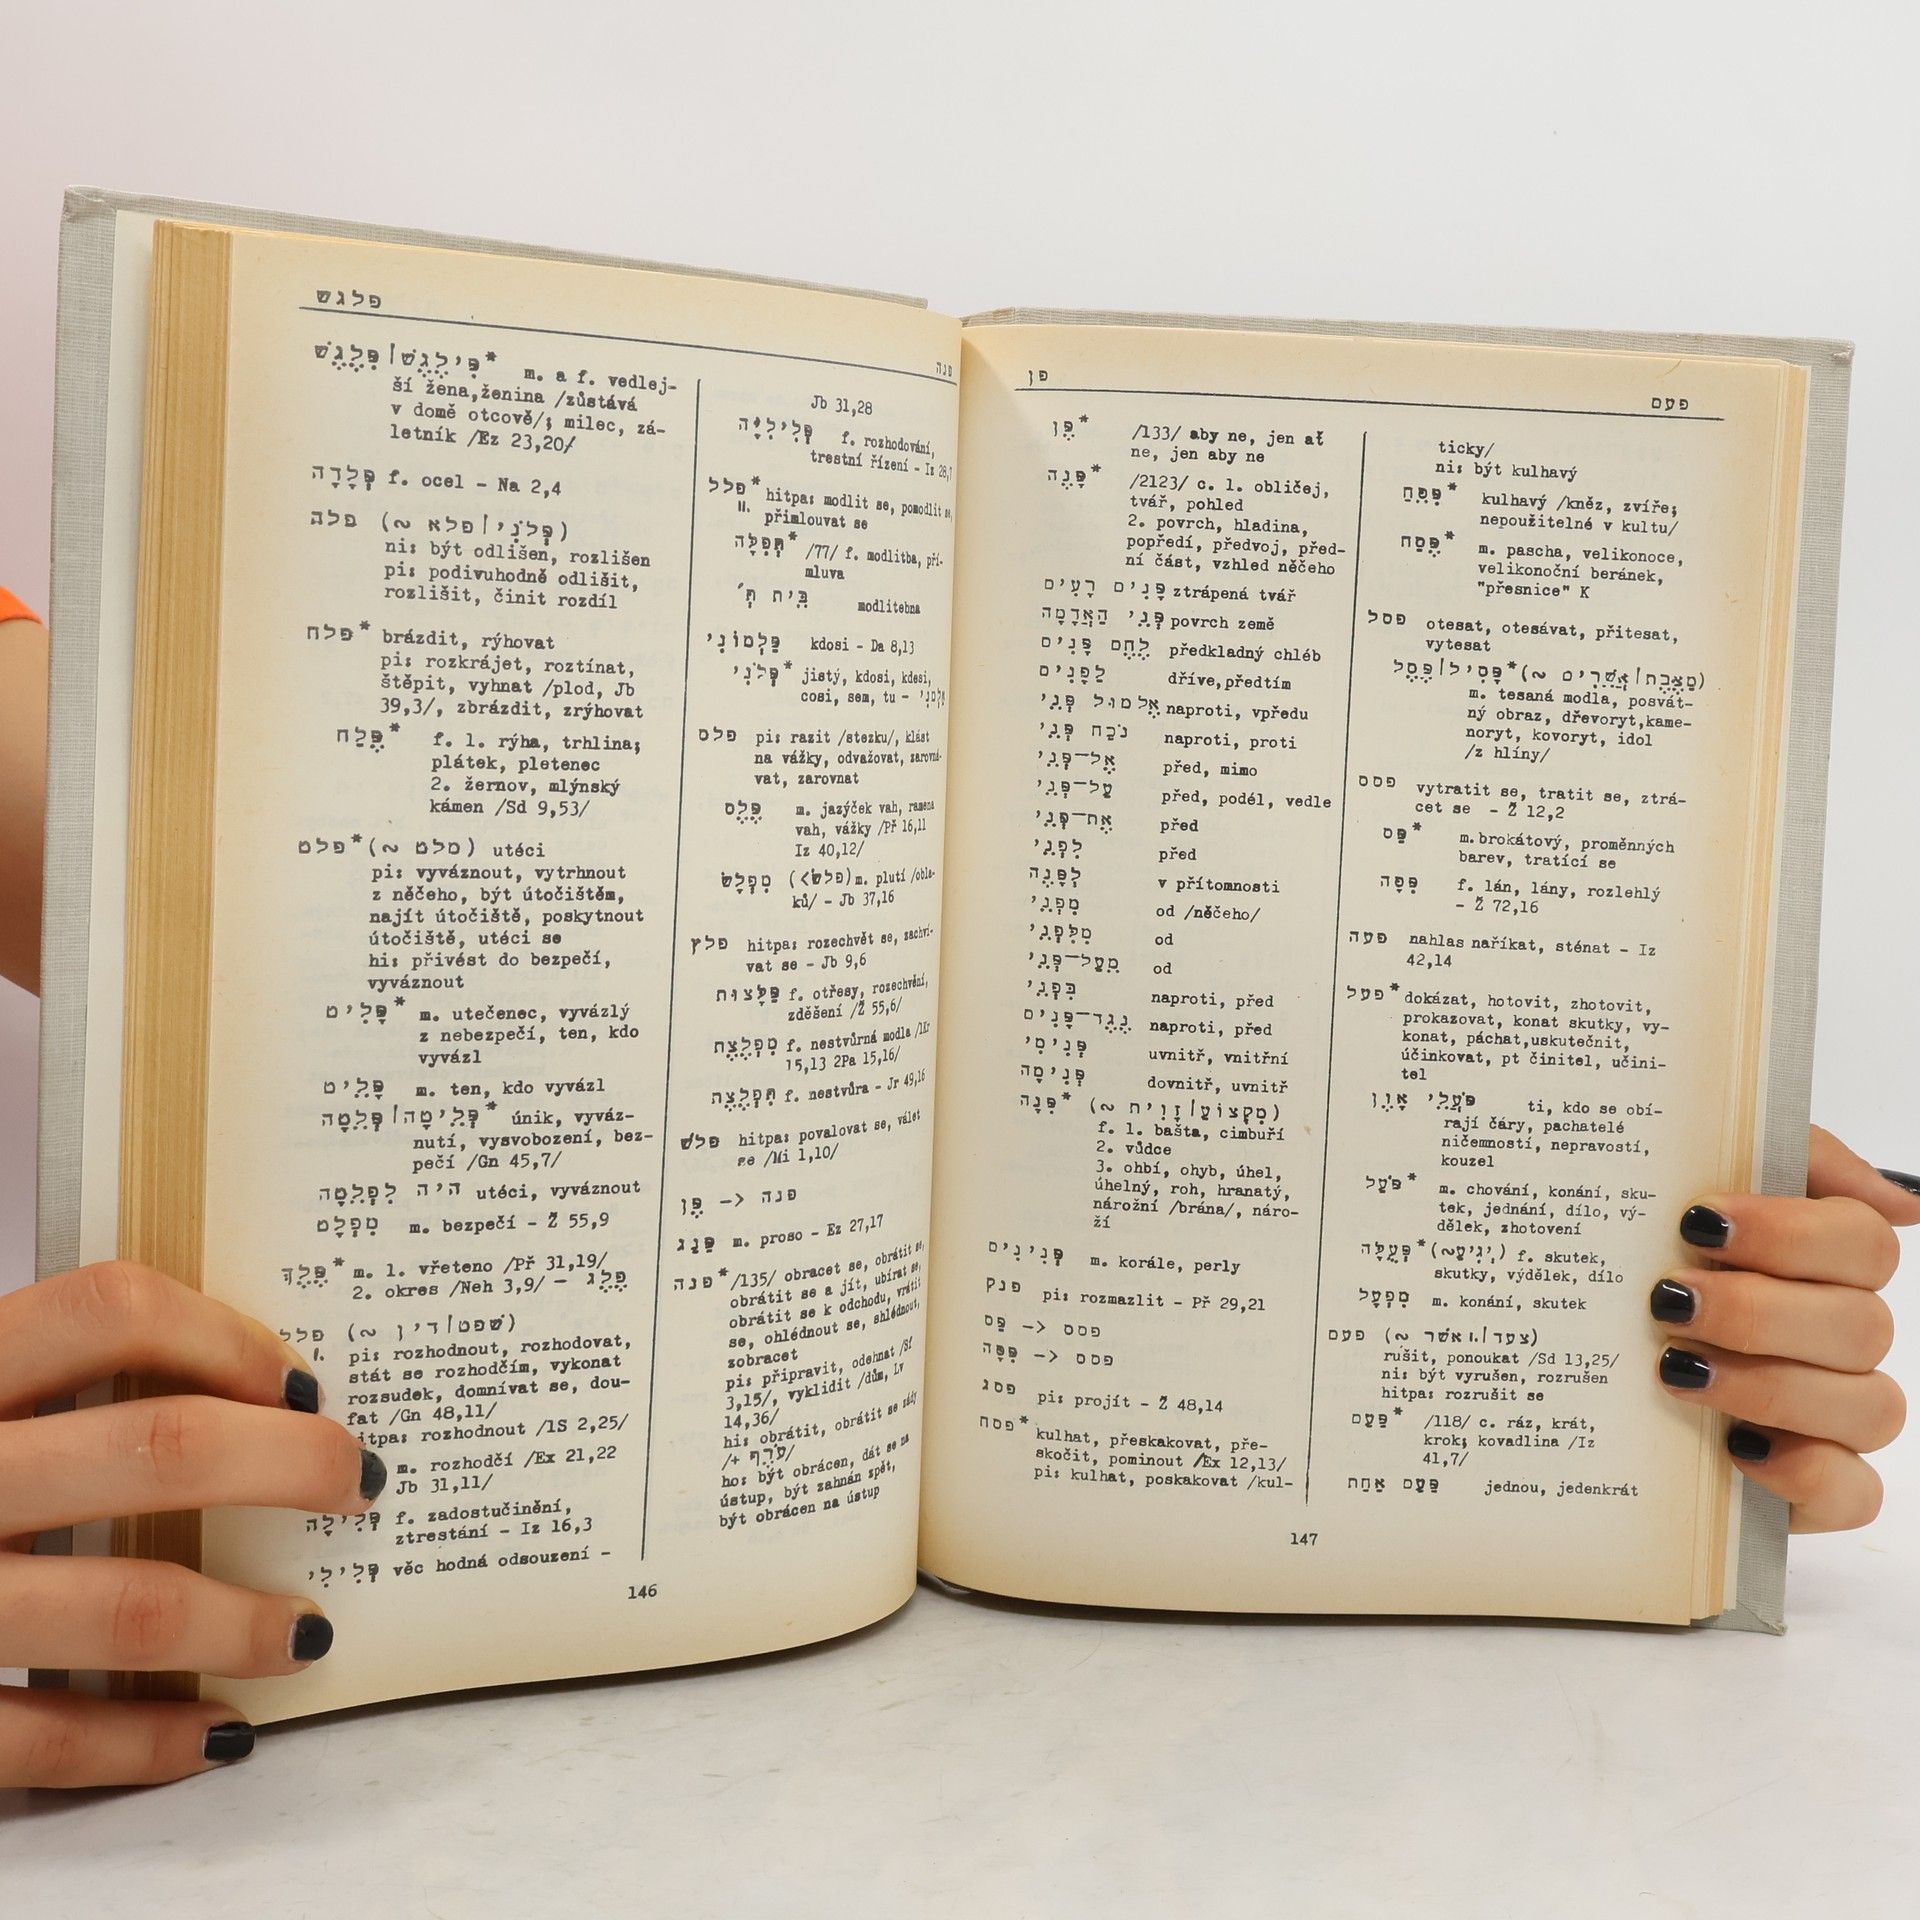 פלגש
פנה
פִּילֶגֶשׁ|פִּלֶגֶשׁ* m. a f. vedlej-
ší žena,ženina /zůstává
v domě otcově/; milec, zá-
letník /Ez 23,20/
פְּלָדָה f. ocel - Na 2,4
פלה (~ פלא|פְּלֹנִי)
ni: být odlišen, rozlišen
pi: podivuhodně odlišit,
rozlišit, činit rozdíl
פלח* brázdit, rýhovat
pi: rozkrájet, roztínat,
štěpit, vyhnat /plod, Jb
39,3/, zbrázdit, zrýhovat
פֶּלַח* f. 1. rýha, trhlina;
plátek, pletenec
2. žernov, mlýnský
kámen /Sd 9,53/
פלט* (~ מלט) utéci
pi: vyváznout, vytrhnout
z něčeho, být útočištěm,
najít útočiště, poskytnout
útočiště, utéci se
hi: přivést do bezpečí,
vyváznout
פָּלִיט* m. utečenec, vyvázlý
z nebezpečí, ten, kdo
vyvázl
פָּלֵיט m. ten, kdo vyvázl
פְּלֵיטָה|פְּלֵטָה* únik, vyváz-
nutí, vysvobození, bez-
pečí /Gn 45,7/
היה לִפְלֵטָה utéci, vyváznout
מִפְלָט m. bezpečí - Ž 55,9
פֶּלֶךְ* m. 1. vřeteno /Př 31,19/
2. okres /Neh 3,9/ - פֶּלֶג
פלל (~ שפט|דין)
I. pi: rozhodnout, rozhodovat,
stát se rozhodčím, vykonat
rozsudek, domnívat se, dou-
fat /Gn 48,11/
itpa: rozhodnout /1S 2,25/
m. rozhodčí /Ex 21,22
Jb 31,11/
פְּלִילָה f. zadostučinění,
ztrestání - Iz 16,3
פְּלִילִי věc hodná odsouzení -
Jb 31,28
פְּלִילִיָּה f. rozhodování,
trestní řízení - Iz 28,7
פלל* hitpa: modlit se, pomodlit se,
II. přimlouvat se
תְּפִלָּה* /77/ f. modlitba, pří-
mluva
בֵּית תְּ׳ modlitebna
פַּלְמוֹנִי kdosi - Da 8,13
פְּלֹנִי* jistý, kdosi, kdesi,
cosi, sem, tu -
פלס pi: razit /stezku/, klást
na vážky, odvažovat, zarovná-
vat, zarovnat
פֶּלֶס m. jazýček vah, ramena
vah, vážky /Př 16,11
Iz 40,12/
מִפְלָשׂ (<פלש) m. plutí /obla-
ků/ - Jb 37,16
פלץ hitpa: rozechvět se, zachví-
vat se - Jb 9,6
פַּלָּצוּת f. otřesy, rozechvění,
zděšení /Ž 55,6/
מִפְלֶצֶת f. nestvůrná modla /1Kr
15,13 2Pa 15,16/
תִּפְלֶצֶת f. nestvůra - Jr 49,16
פלשׁ hitpa: povalovat se, válet
se /Mi 1,10/
פֶּן <- פנה
פַּנַּג m. proso - Ez 27,17
פנה* /135/ obracet se, obrátit se,
obrátit se a jít, ubírat se,
obrátit se k odchodu, vrátit
se, ohlédnout se, shlédnout,
zobracet
pi: připravit, odehnat /Sf
3,15/, vyklidit /dům, Lv
14,36/
hi: obrátit, obrátit se zády
/+ עֹרֶף/
ho: být obrácen, dát se na
ústup, být zahnán zpět,
být obrácen na ústup
146
פן
פעם
פֶּן* /133/ aby ne, jen ať
ne, jen aby ne
פָּנֶה* /2123/ c. 1. obličej,
tvář, pohled
2. povrch, hladina,
popředí, předvoj, před-
ní část, vzhled něčeho
פָּנִים רָעִים ztrápená tvář
פְּנֵי הַאֲדָמָה povrch země
לֶחֶם פָּנִים předkladný chléb
לַפָנִים dříve,předtím
אֶלמוּל פְּנֵי naproti, vpředu
נֹכַח פְּנֵי naproti, proti
אֶל-פְּנֵי před, mimo
עַל-פְּנֵי před, podél, vedle
אֶת-פְּנֵי před
לִפְנֵי před
לְפָנֶה v přítomnosti
מִפְּנֵי od /něčeho/
מִלִּפְנֵי od
מֵעַל-פְּנֵי od
בִּפְנֵי naproti, před
נֶגֶד-פָּנִים naproti, před
פְּנִימִי uvnitř, vnitřní
פְּנִימָה dovnitř, uvnitř
פִּנָּה* (~ מִקְצוֹעַ|זָוִית)
f. 1. bašta, cimbuří
2. vůdce
3. ohbí, ohyb, úhel,
úhelný, roh, hranatý,
nárožní /brána/, náro-
ží
פְּנִינִים m. korále, perly
פנק pi: rozmazlit - Př 29,21
פַּס <- פסס
פִּסָּה <- פסס
פסג pi: projít - Ž 48,14
פסח* kulhat, přeskakovat, pře-
skočit, pominout /Ex 12,13/
pi: kulhat, poskakovat /kul-
ticky/
ni: být kulhavý
פִּסֵּחַ* kulhavý /kněz, zvíře;
nepoužitelné v kultu/
פֶּסַח* m. pascha, velikonoce,
velikonoční beránek,
"přesnice" K
פסל otesat, otesávat, přitesat,
vytesat
פָּסִיל|פֶּסֶל* (~ מַצֵּבֶת|אֲשֵׁרִים)
m. tesaná modla, posvát-
ný obraz, dřevoryt,kame-
noryt, kovoryt, idol
/z hlíny/
פסס vytratit se, tratit se, ztrá-
cet se - Ž 12,2
פַּס* m.brokátový, proměnných
barev, tratící se
פִּסָּה f. lán, lány, rozlehlý
- Ž 72,16
פעה nahlas naříkat, sténat - Iz
42,14
פעל* dokázat, hotovit, zhotovit,
prokazovat, konat skutky, vy-
konat, páchat,uskutečnit,
účinkovat, pt činitel, učini-
tel
פֹּעֲלֵי אָוֶן ti, kdo se obí-
rají čáry, pachatelé
ničemností, nepravostí,
kouzel
פֹּעַל* m. chování, konání, sku-
tek, jednání, dílo, vý-
dělek, zhotovení
פְּעֻלָּה* (~יְגִיעַ) f. skutek,
skutky, výdělek, dílo
מִפְעָל m. konání, skutek
פעם (~ צעד|I.אשר)
rušit, ponoukat /Sd 13,25/
ni: být vyrušen, rozrušen
hitpa: rozrušit se
פַּעַם* /118/ c. ráz, krát,
krok; kovadlina /Iz
41,7/
פַּעַם אַחַת jednou, jedenkrát
147